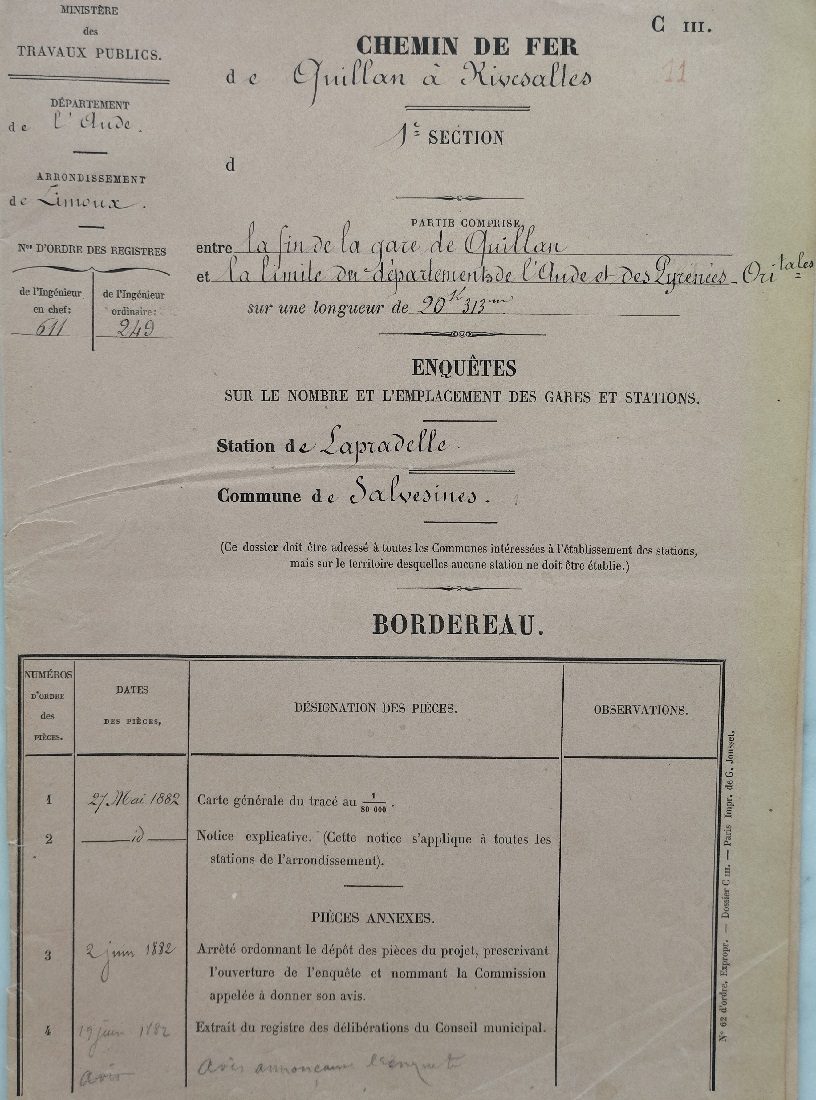 MINISTÈRE
des
TRAVAUX PUBLICS.
DÉPARTEMENT
de l'Aude.
ARRONDISSEMENT
de Limoux.
Nos D'ORDRE DES REGISTRES
de l'Ingénieur
en chef:
611
de l'Ingénieur
ordinaire:
249
C III.
11
CHEMIN DE FER
de Quillan à Rivesaltes
1re SECTION
d
PARTIE COMPRISE,
entre la fin de la gare de Quillan
et la limite du départements de l'Aude et des Pyrénées-Ori tales
sur une longueur de 20K 313m
ENQUÊTES
SUR LE NOMBRE ET L'EMPLACEMENT DES GARES ET STATIONS.
Station de Lapradelle.
Commune de Salvesines.
(Ce dossier doit être adressé à toutes les Communes intéressées à l'établissement des stations,
mais sur le territoire desquelles aucune station ne doit être établie.)
BORDEREAU.
NUMÉROS
D'ORDRE
des
PIÈCES.
DATES
DES PIÈCES,
DÉSIGNATION DES PIÈCES.
OBSERVATIONS.
1 27 Mai 1882 Carte générale du tracé au 1/80 000.
2 id Notice explicative. (Cette notice s'applique à toutes les
stations de l'arrondissement).
PIÈCES ANNEXES.
3 2 juin 1882 Arrêté ordonnant le dépôt des pièces du projet, prescrivant
l'ouverture de l'enquête et nommant la Commission
appelée à donner son avis.
4 19 juin 1882 Extrait du registre des délibérations du Conseil municipal.
avis Avis annonçant l'enquête
N° 62 d'ordre, Expropr. — Dossier C III. — Paris Impr. de G. Jousset.